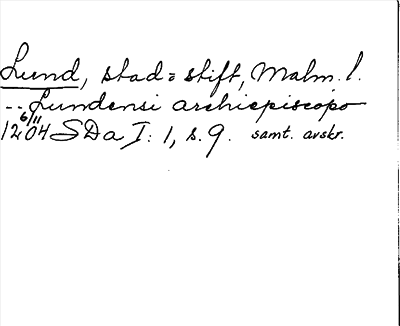 Lund, stad o stift, Malm. l.
-- Lundensi archiepiscopo
12 6/11 04 SDa I: 1, s. 9. samt. avskr.